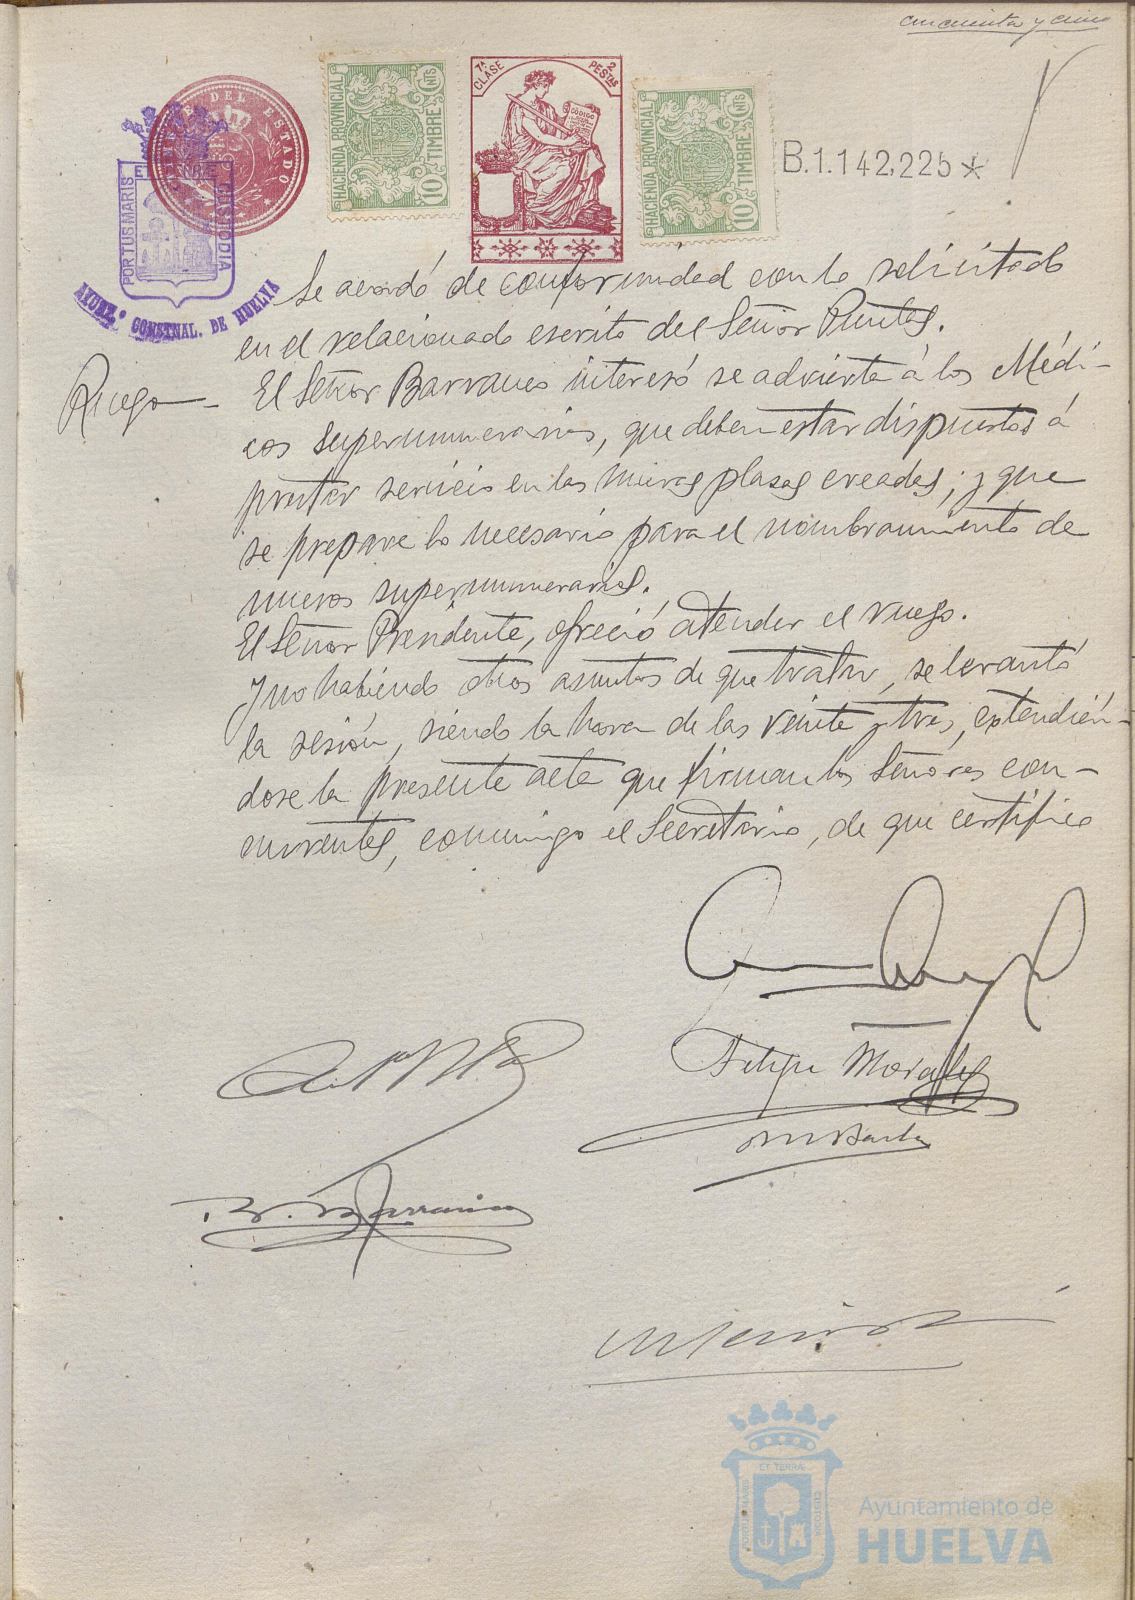 cincuenta y cinco
TIMBRE DEL ESTADO
PORTUS MARIS
CUSTODIA
AYUNT.º CONSTNAL. DE HUELVA
HACIENDA PROVINCIAL
10 CTS
TIMBRE
7ª CLASE
2 PESTAS
CODIGO
HACIENDA PROVINCIAL
10 CTS
TIMBRE
B.1.142,225*
Se acordó de conformidad con lo solicitado
en el relacionado escrito del Señor Puntas.
Ruego - El Señor Barranco interesó se advierta á los Médi-
cos supernumerarios, que deben estar dispuestos á
prestar servicio en las nuevas plazas creadas; y que
se prepare lo necesario para el nombramiento de
nuevos supernumerarios.
El Señor Presidente, ofreció atender el ruego.
Y no habiendo otros asuntos de que tratar, se levantó
la sesión, siendo la hora de las veinte y tres, extendién-
dose la presente acta que firman los Señores con-
currentes, conmigo el Secretario, de que certifico
Felipe Morales
Barranco
ET TERRÆ
PORTUS MARIS
CUSTODIA
Ayuntamiento de
HUELVA